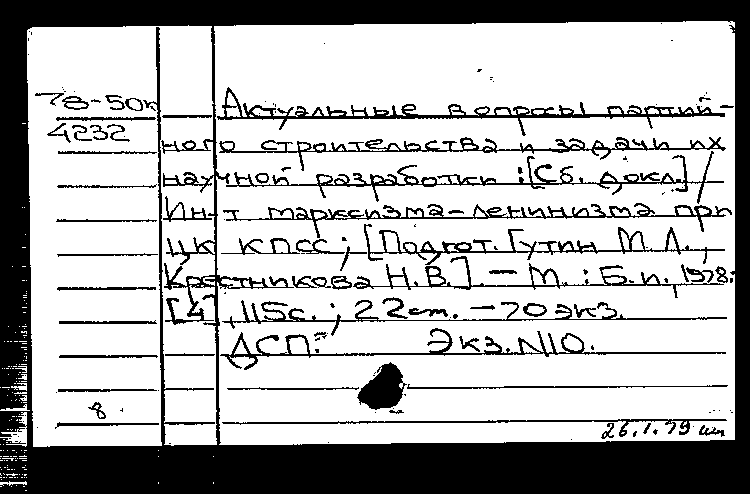 78-50к Актуальные вопросы партий-
4232 ного строительства и задачи их
научной разработки : [Сб. докл.] /
Ин-т марксизма-ленинизма при
ЦК КПСС ; [Подгот. Гутин М.Л.,
Крестникова Н.В.]. — М. : Б.и., 1978.
[4], 115с. ; 22см. — 70 экз.
ДСП. Экз. N10.
8
26.1.79